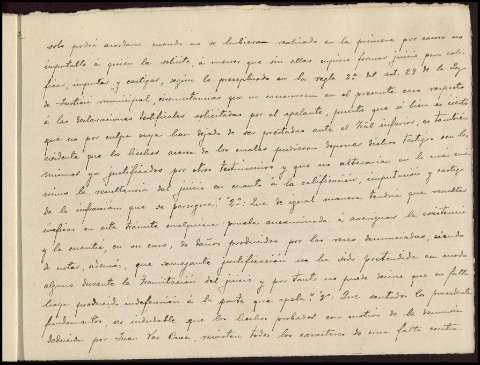 solo podrá acordarse cuando no se hubieran realizado en la primera por causa no
imputable á quien la solicite, á menos que sin ellas equivo formar juicio para cali-
ficar, imputar y castigar, según lo preceptuado en la regla 2ª del art. 29 de la Ley
de Justicia municipal, circunstancias que no concurren en el presente caso respecto
á las declaraciones testificales solicitadas por el apelante, puesto que si bien es cierto
que no por culpa suya han dejado de ser prestadas ante el Tral inferior, es también
evidente que los hechos acerca de los cuales pudieran deponer dichos testigos son los
mismos ya justificados por otros testimonios y que no alterarían en lo más mí-
nimo la resultancia del juicio en cuanto á la calificación, imputación y castigo
de la infracción que se persigue." 2º: Que de igual manera tendría que resultar
ineficaz en este trámite cualquiera prueba encaminada á averiguar la existencia
y la cuantía, en su caso, de daños producidos por las reses denunciadas, siendo
de notar, además, que semejante justificación no ha sido pretendida en modo
alguno durante la tramitación del juicio y por tanto no puede decirse que su falta
haya producido indefensión á la parte que apela." 3º. Que sentados los precedentes
fundamentos, es indudable que los hechos probados con motivo de la denuncia
deducida por Juan Vas, revisten todos los caracteres de una falta contra